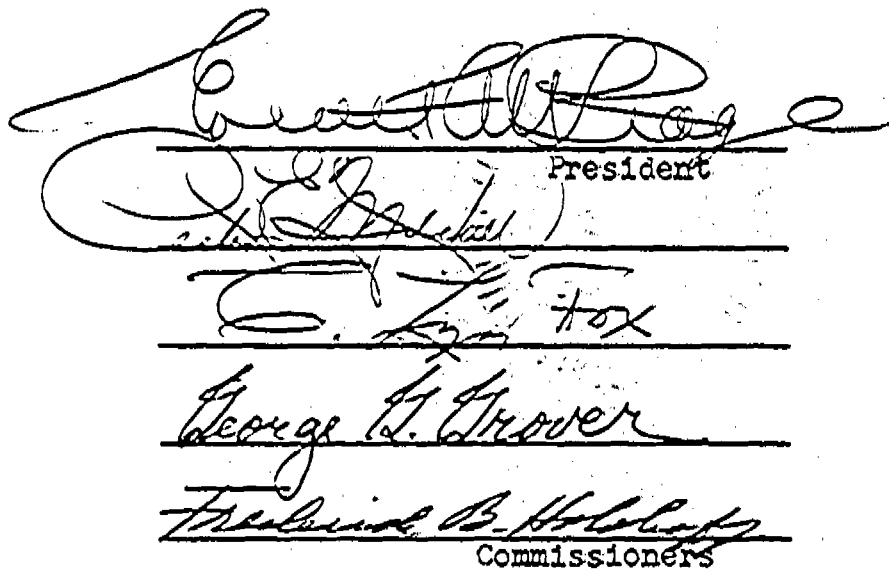 Everett
President
C. Lyn Fox
George G. Grover
Frederick B. Holoboff
Commissioners